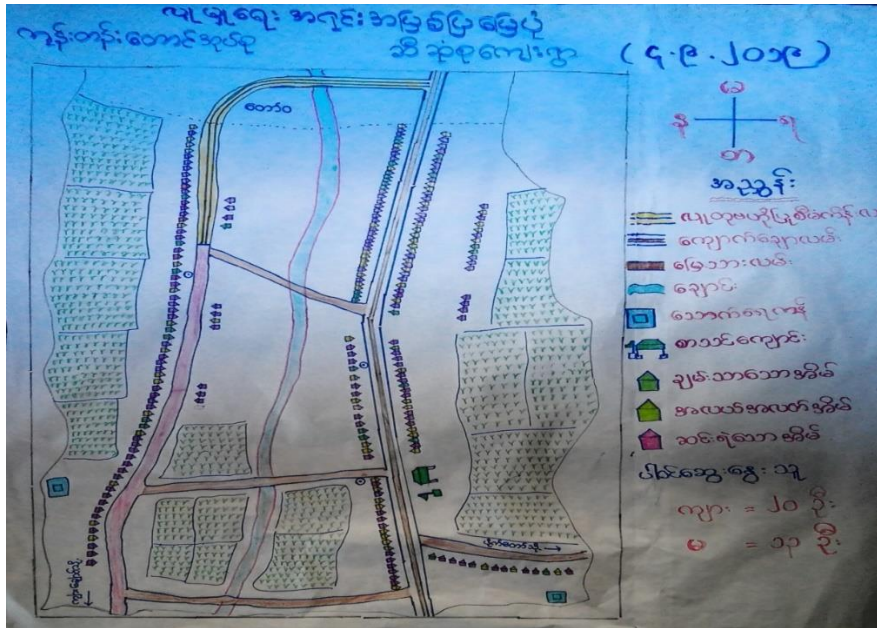 လူမှုရေး အရင်းအမြစ်ပြ မြေပုံ
ကွန်းတန်းတောင်အုပ်စု
ဆီဆုံစုကျေးရွာ
(၄.၉.၂၀၁၉)
တော်ဝ
မ
န
ရ
တ
အညွှန်း
ကျောက်ချောလမ်း
မြေသားလမ်း
ချောင်း
သောက်ရေကန်
စာသင်ကျောင်း
ချမ်းသာသောအိမ်
အလယ်အလတ်အိမ်
ဆင်းရဲသောအိမ်
ပါဝင်ဆွေးနွေးသူ
ကျား = ၂၀ ဦး
မ = ၁၃ ဦး